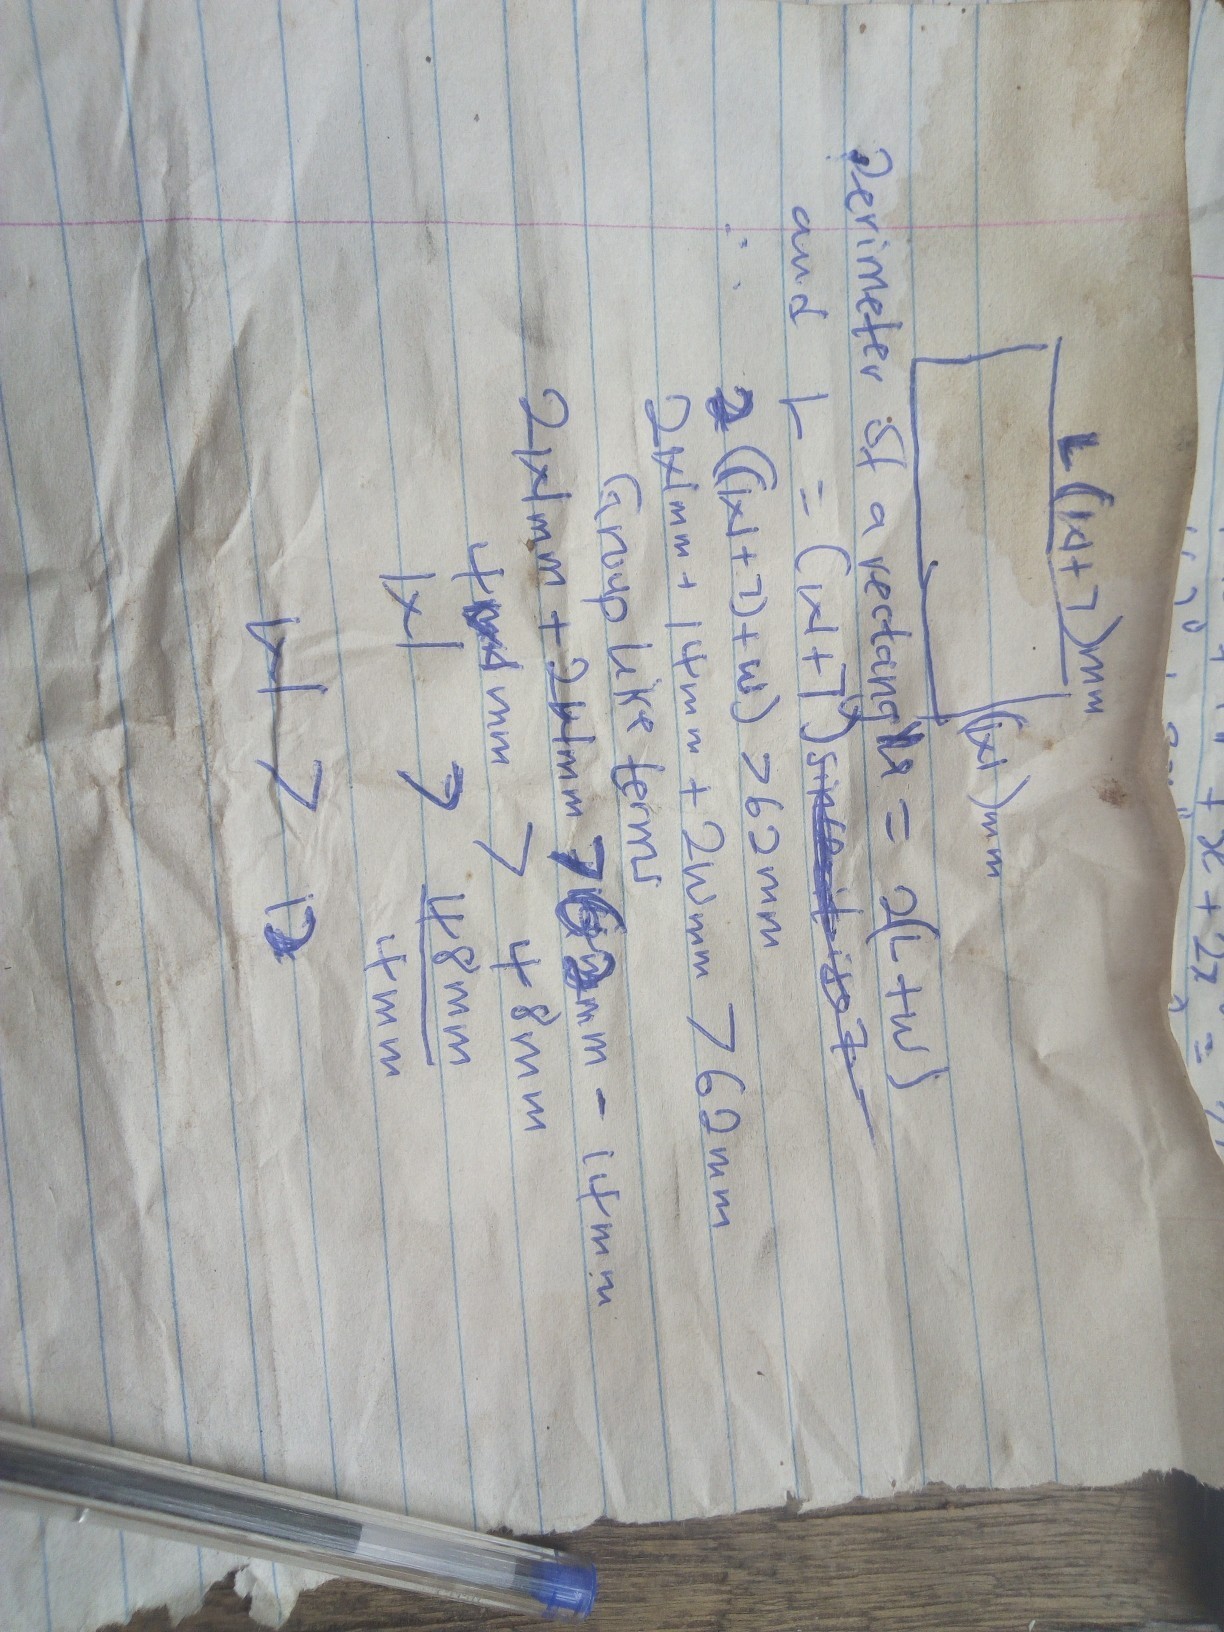 L(|x|+7)mm
(|x|)mm
Perimeter of a rectangle = 2(L+W)
and L = (|x|+7)
∴ 2((|x|+7)+w) > 62mm
2|x|mm + 14mm + 2wmm > 62mm
Group like terms
2|x|mm + 2wmm > 62mm - 14mm
4 mm > 48mm
|x| > 48mm
4mm
|x| > 12